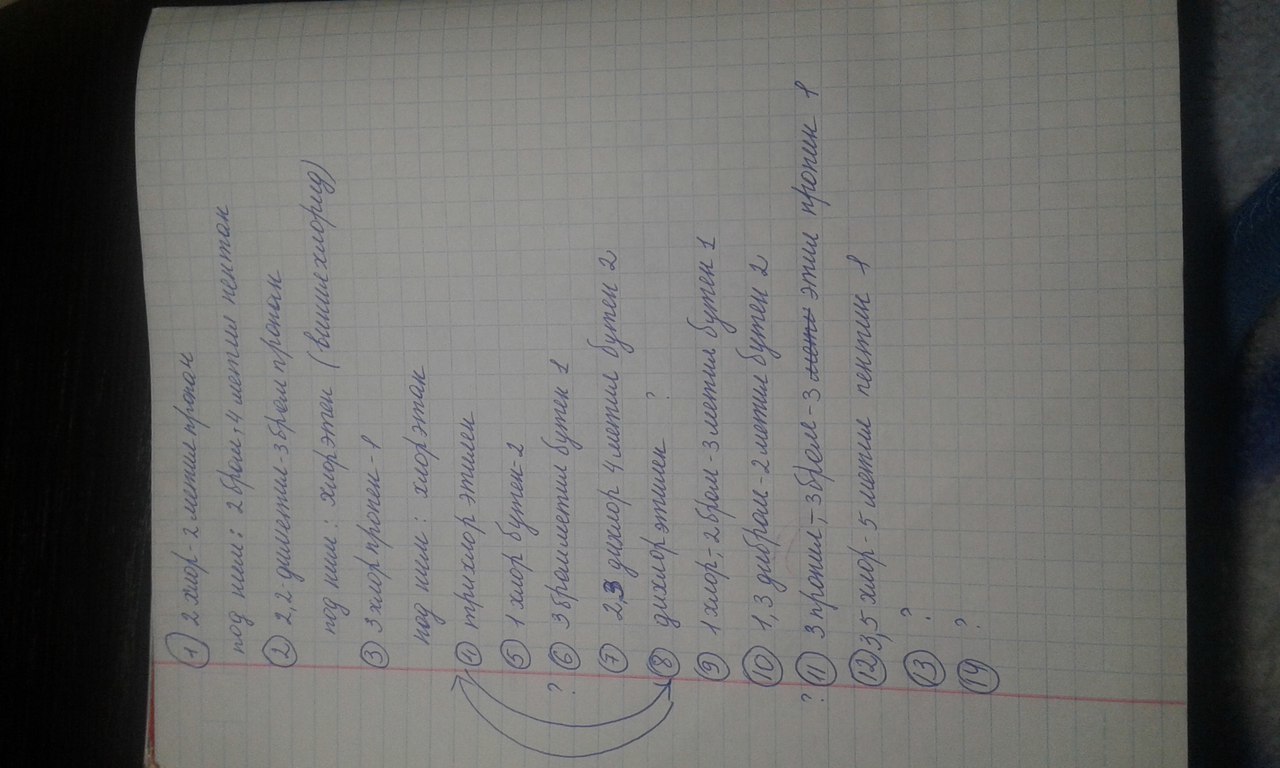 ① 2 хлор-2 метил пропан
под ним: 2 бром, 4 метил пентан
② 2,2-диметил-3 бром пропан
под ним: хлорэтен (винилхлорид)
③ 3 хлор пропен-1
под ним: хлорэтан
④ трихлор этилен
⑤ 1 хлор бутен-2
? ⑥ 3 бромметил бутен 1
⑦ 2,3 дихлор 4 метил бутен 2
⑧ дихлор этилен ?
⑨ 1 хлор, 2 бром-3 метил бутен 1
⑩ 1,3 дибром-2 метил бутен 2
? ⑪ 3 пропил,-3 бром-3 мети этил пропин 1
⑫ 3,5 хлор-5 метил пентин 1
⑬ ?
⑭ ?